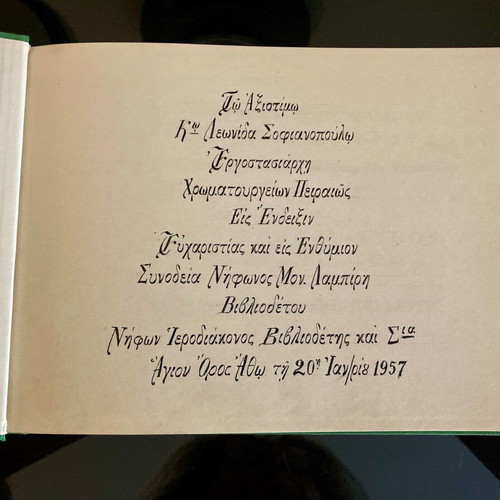 Τῷ Ἀξιοτίμῳ
Κῳ Λεωνίδα Σοφιανοπούλῳ
Ἐργοστασιάρχῃ
Χρωματουργείων Πειραιῶς
Εἰς Ἔνδειξιν
Εὐχαριστίας καὶ εἰς Ἐνθύμιον
Συνοδεία Νήφωνος Μον. Λαμπίρη
Βιβλιοδέτου
Νήφων Ἱεροδιάκονος Βιβλιοδέτης καὶ Σια
Ἅγιον Ὄρος Ἄθῳ τῇ 20ῃ Ἰαν/ρίου 1957